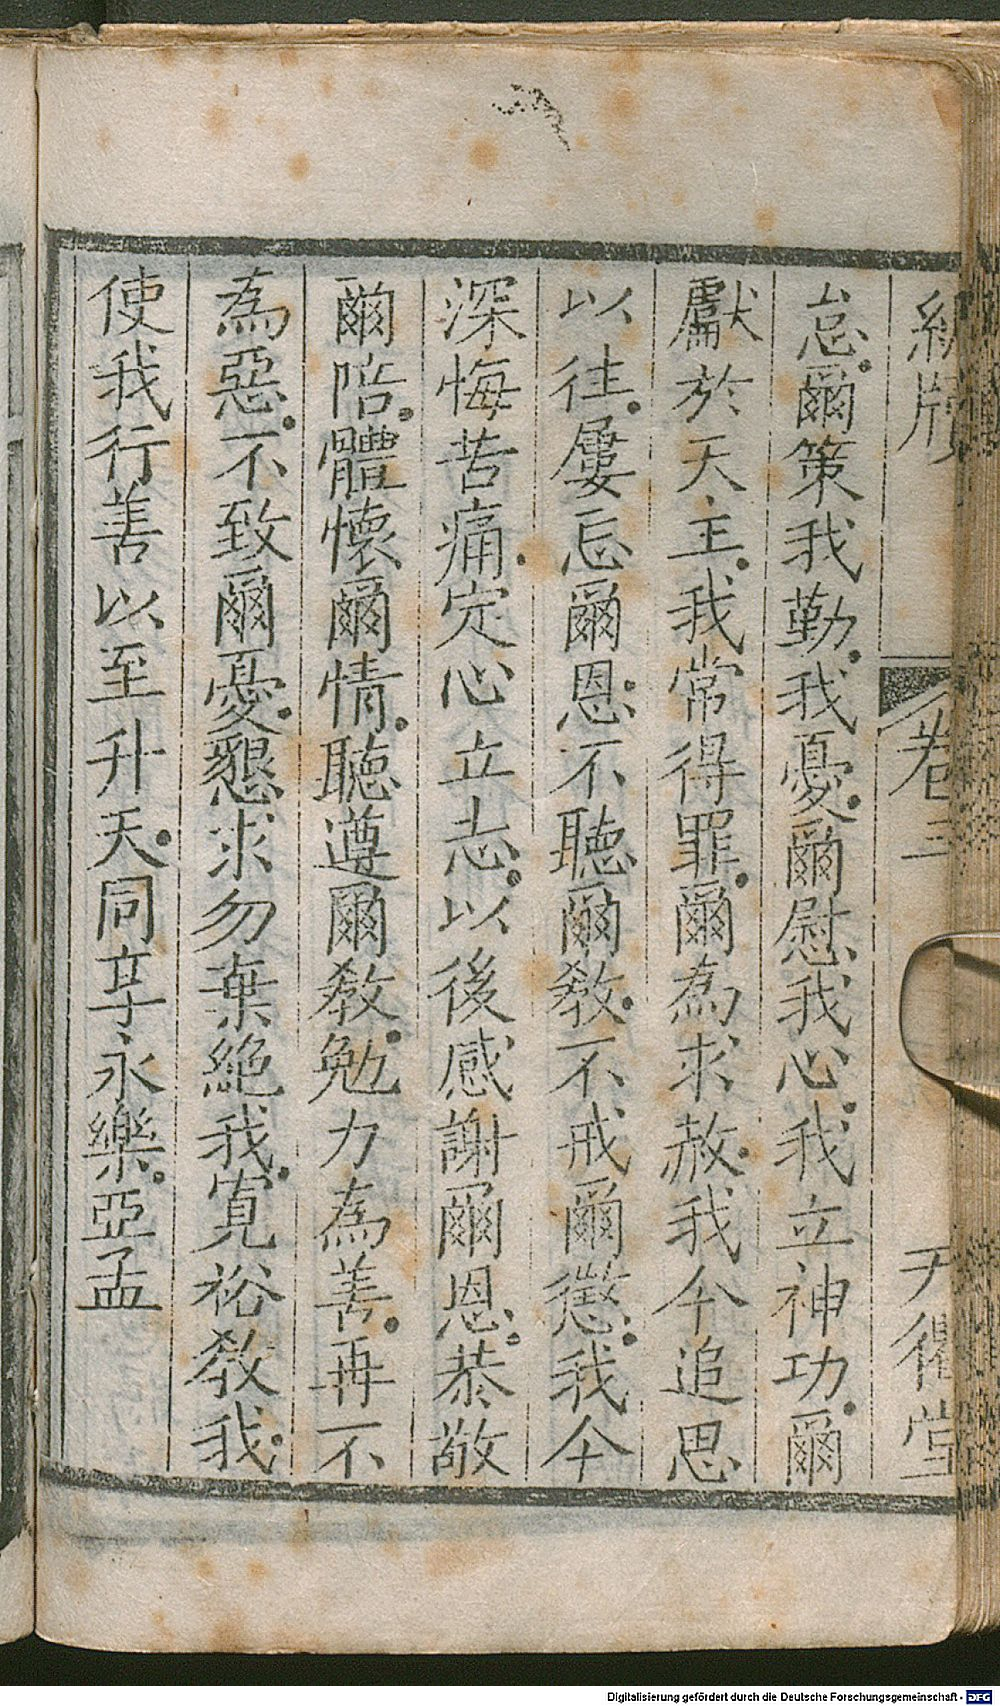 卷三
怠。爾策我勤。我憂。爾慰我心。我立神功。爾
獻於天主。我常得罪。爾為求赦。我今追思
以往。屢忘爾恩。不聽爾教。不戒爾懲。我今
深悔苦痛。定心立志。以後感謝爾恩。恭敬
爾陪。體懷爾情。聽遵爾教。勉力為善。再不
為惡。不致爾憂。懇求勿棄絕我。寬裕教我。
使我行善以至升天。同享永樂。亞孟
Digitalisierung gefördert durch die Deutsche Forschungsgemeinschaft - DFG